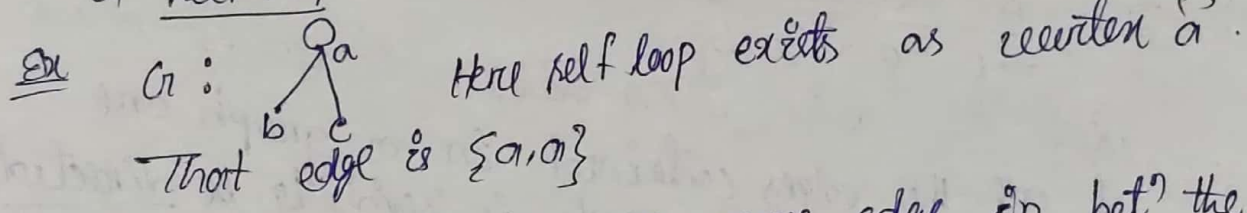 Ex G: a Here self loop exists as vertex a.
b c
That edge is {a,a}
edge in betn the